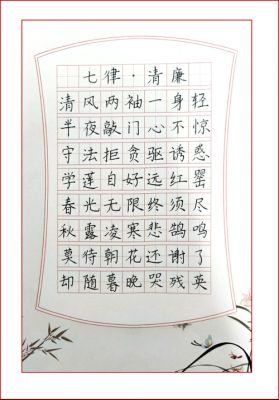 七律·清廉
清风两袖一身轻
半夜敲门心不惊
守法拒贪驱诱惑
学莲自好远红罂
春光无限终须尽
秋露凌寒悲鹄鸣
莫待朝花还谢了
却随暮晚哭残英